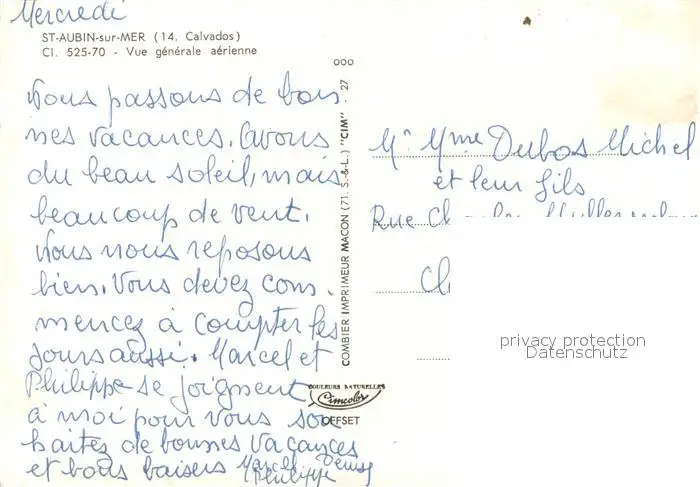 Mercredi
ST-AUBIN-sur-MER (14. Calvados)
Cl. 525-70 - Vue générale aérienne
Nous passons de bon
nes vacances. Avons
du beau soleil, mais
beaucoup de vent.
Nous nous reposons
bien. Vous devez com
mencez à compter les
jours aussi. Marcel et
Philippe se joignent
à moi pour vous sou
haitez de bonnes vacances
et bons baisers Marcel Denise
Philippe
COMBIER IMPRIMEUR MACON (71. S.-&-L.) "CIM" - 27
000
COULEURS NATURELLES
Cimcolor
OFFSET
Mr Mme Dubos Michel
et leur fils
Rue
privacy protection
Datenschutz